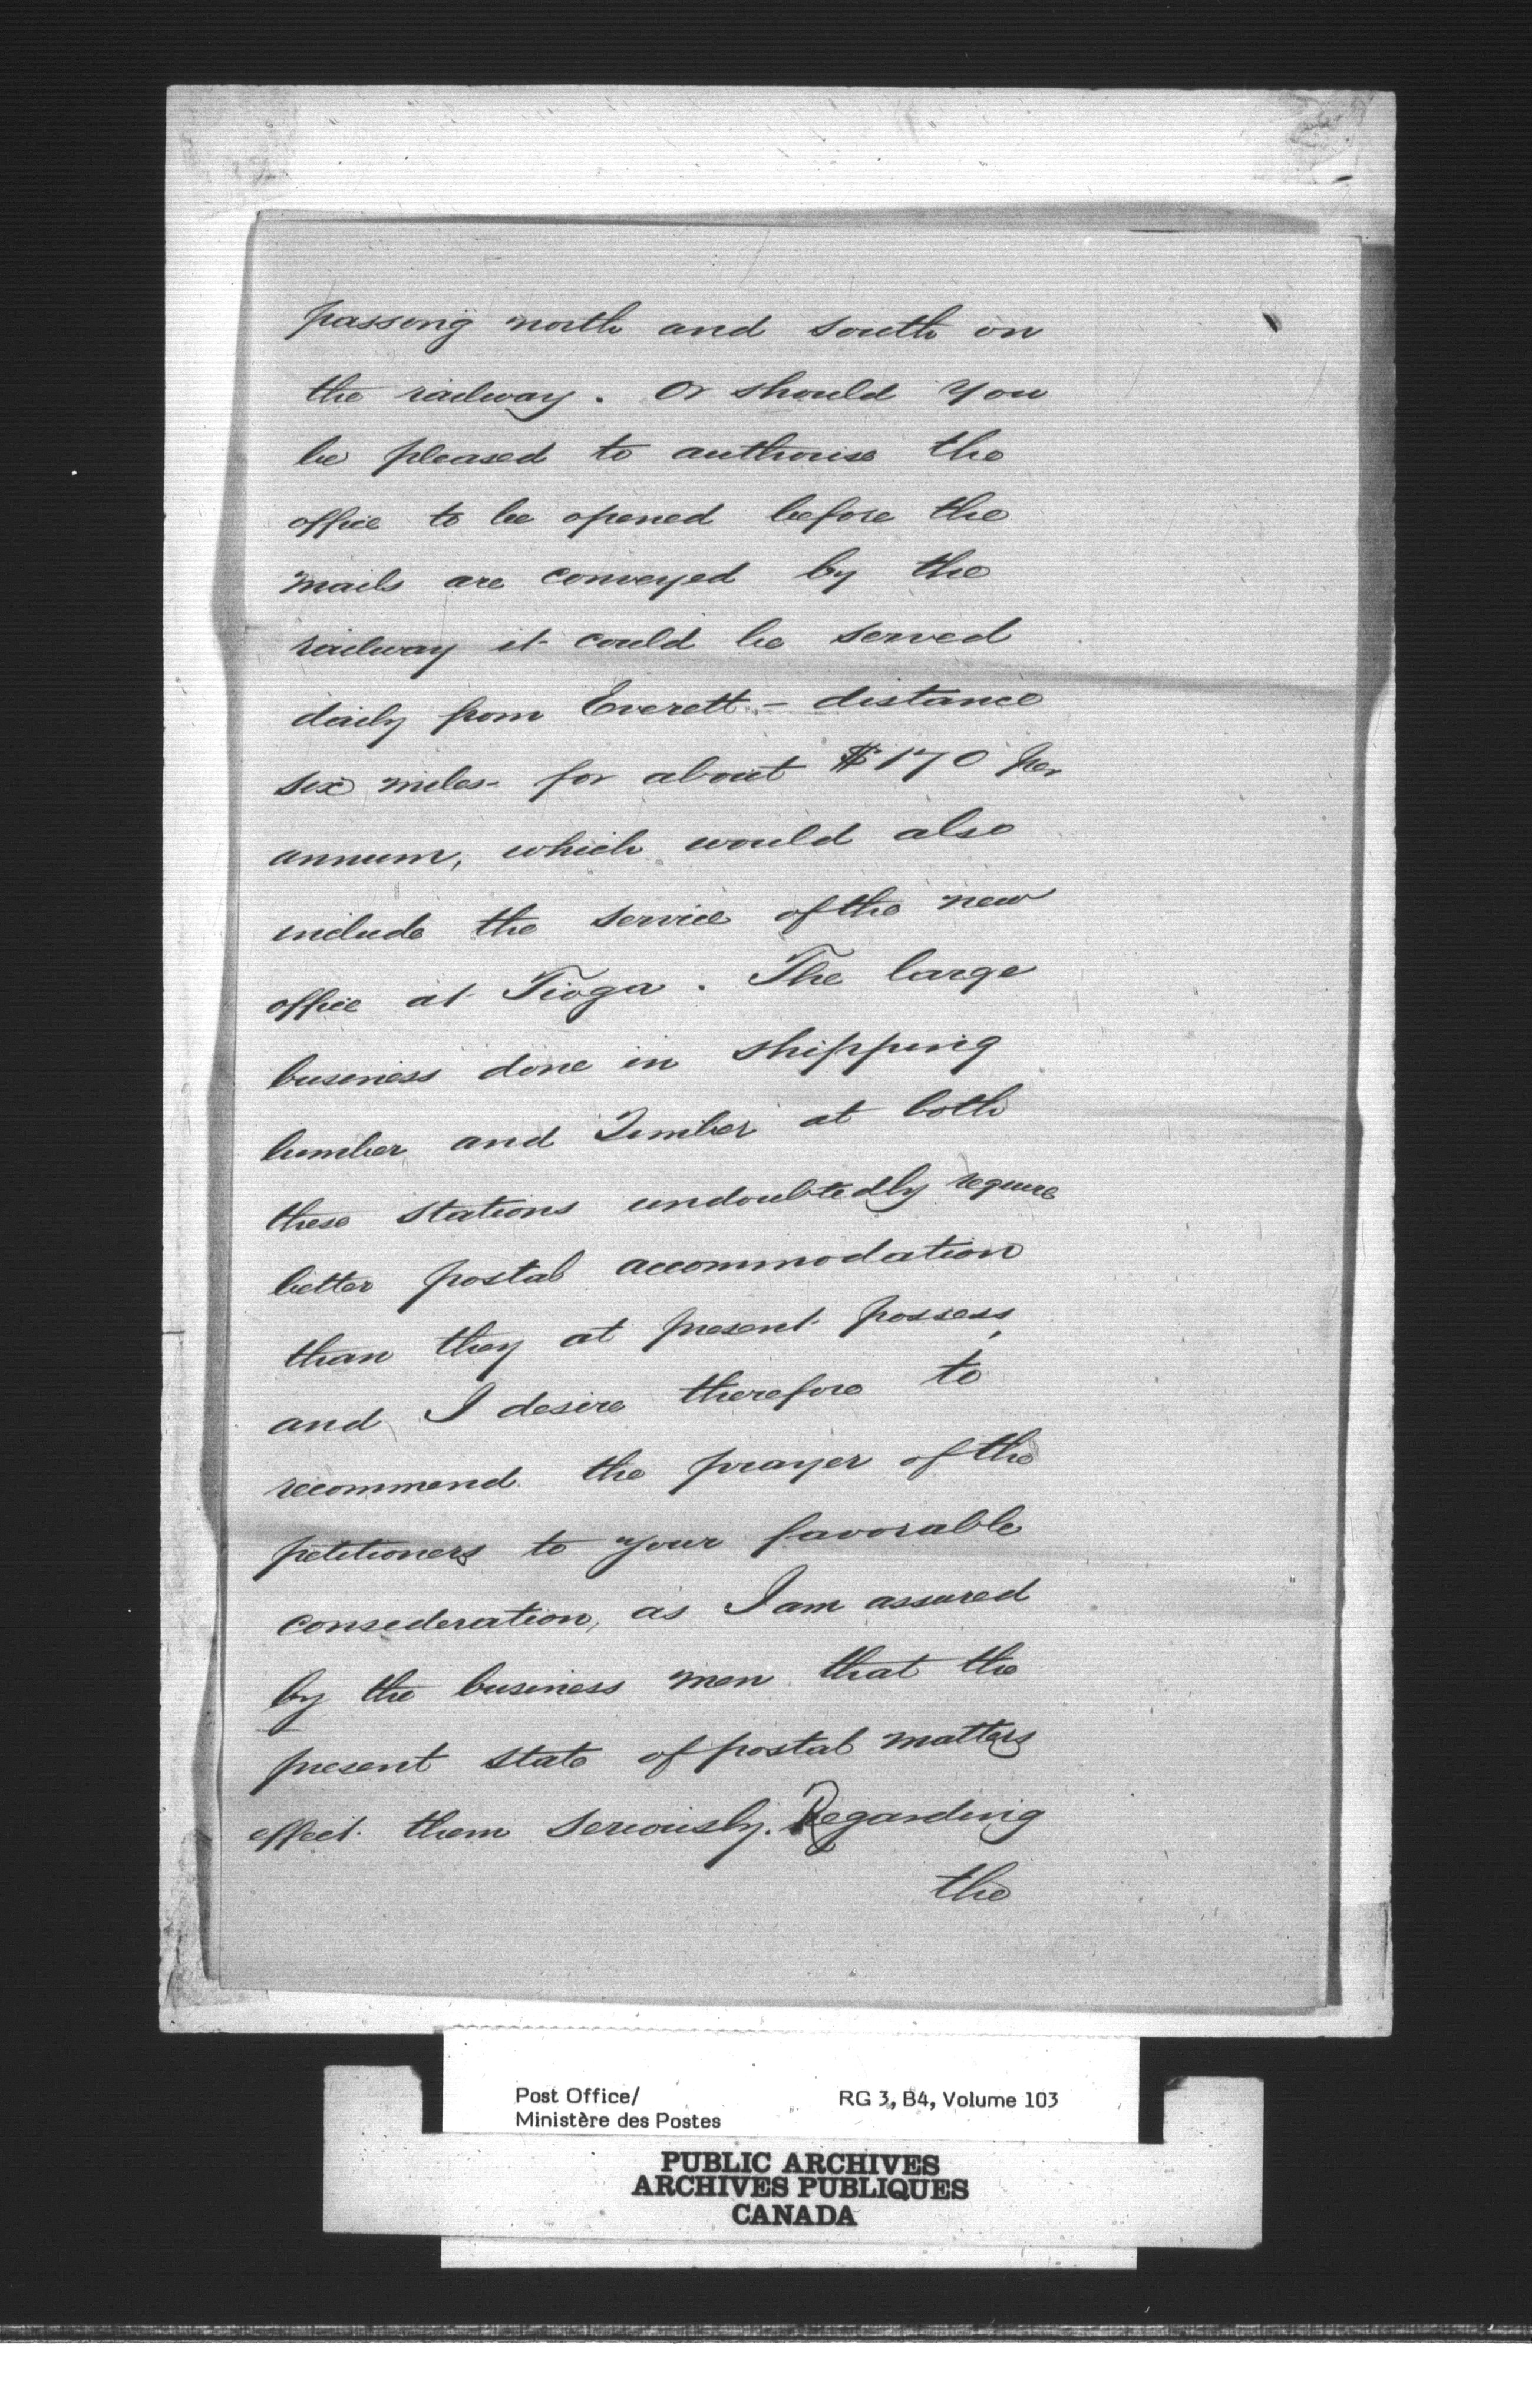 passing north and south on
the railway. Or should you
be pleased to authorise the
office to be opened before the
mails are conveyed by the
railway it could be served
daily from Everett - distance
six miles - for about $170 per
annum, which would also
include the service of the new
office at Tioga. The large
business done in shipping
lumber and Timber at both
these stations undoubtedly require
better postal accommodation
than they at present possess,
and I desire therefore to
recommend the prayer of the
petitioners to your favorable
consideration, as I am assured
by the business men that the
present state of postal matters
effect them seriously. Regarding
the
Post Office/ RG 3, B4, Volume 103
Ministère des Postes
PUBLIC ARCHIVES
ARCHIVES PUBLIQUES
CANADA